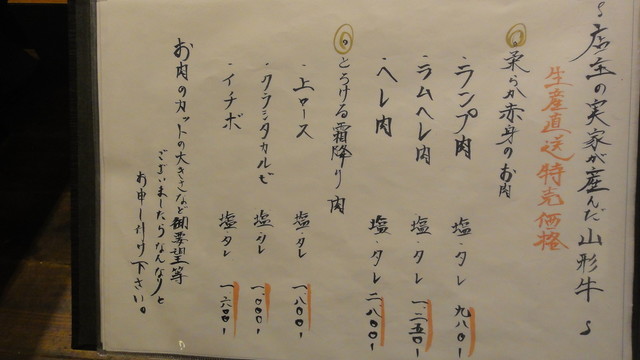 ~店主の実家が産んだ山形牛~
生産直送特売価格
柔らか赤身のお肉
・ランプ肉 塩・タレ 九八〇-
・ラムヘレ肉 塩・タレ 一、二五〇-
・ヘレ肉 塩・タレ 二、八〇〇-
とろける霜降り肉
・上ロース 塩・タレ 一、八〇〇-
・クラシタカルビ 塩・タレ 一、〇〇〇-
・イチボ 塩・タレ 一、六〇〇-
お肉のカットの大きさなど御要望等
ございましたらなんなりと
お申し付け下さい。